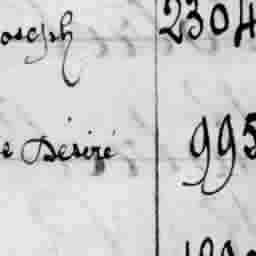 oseph 2304
e Désiré 995